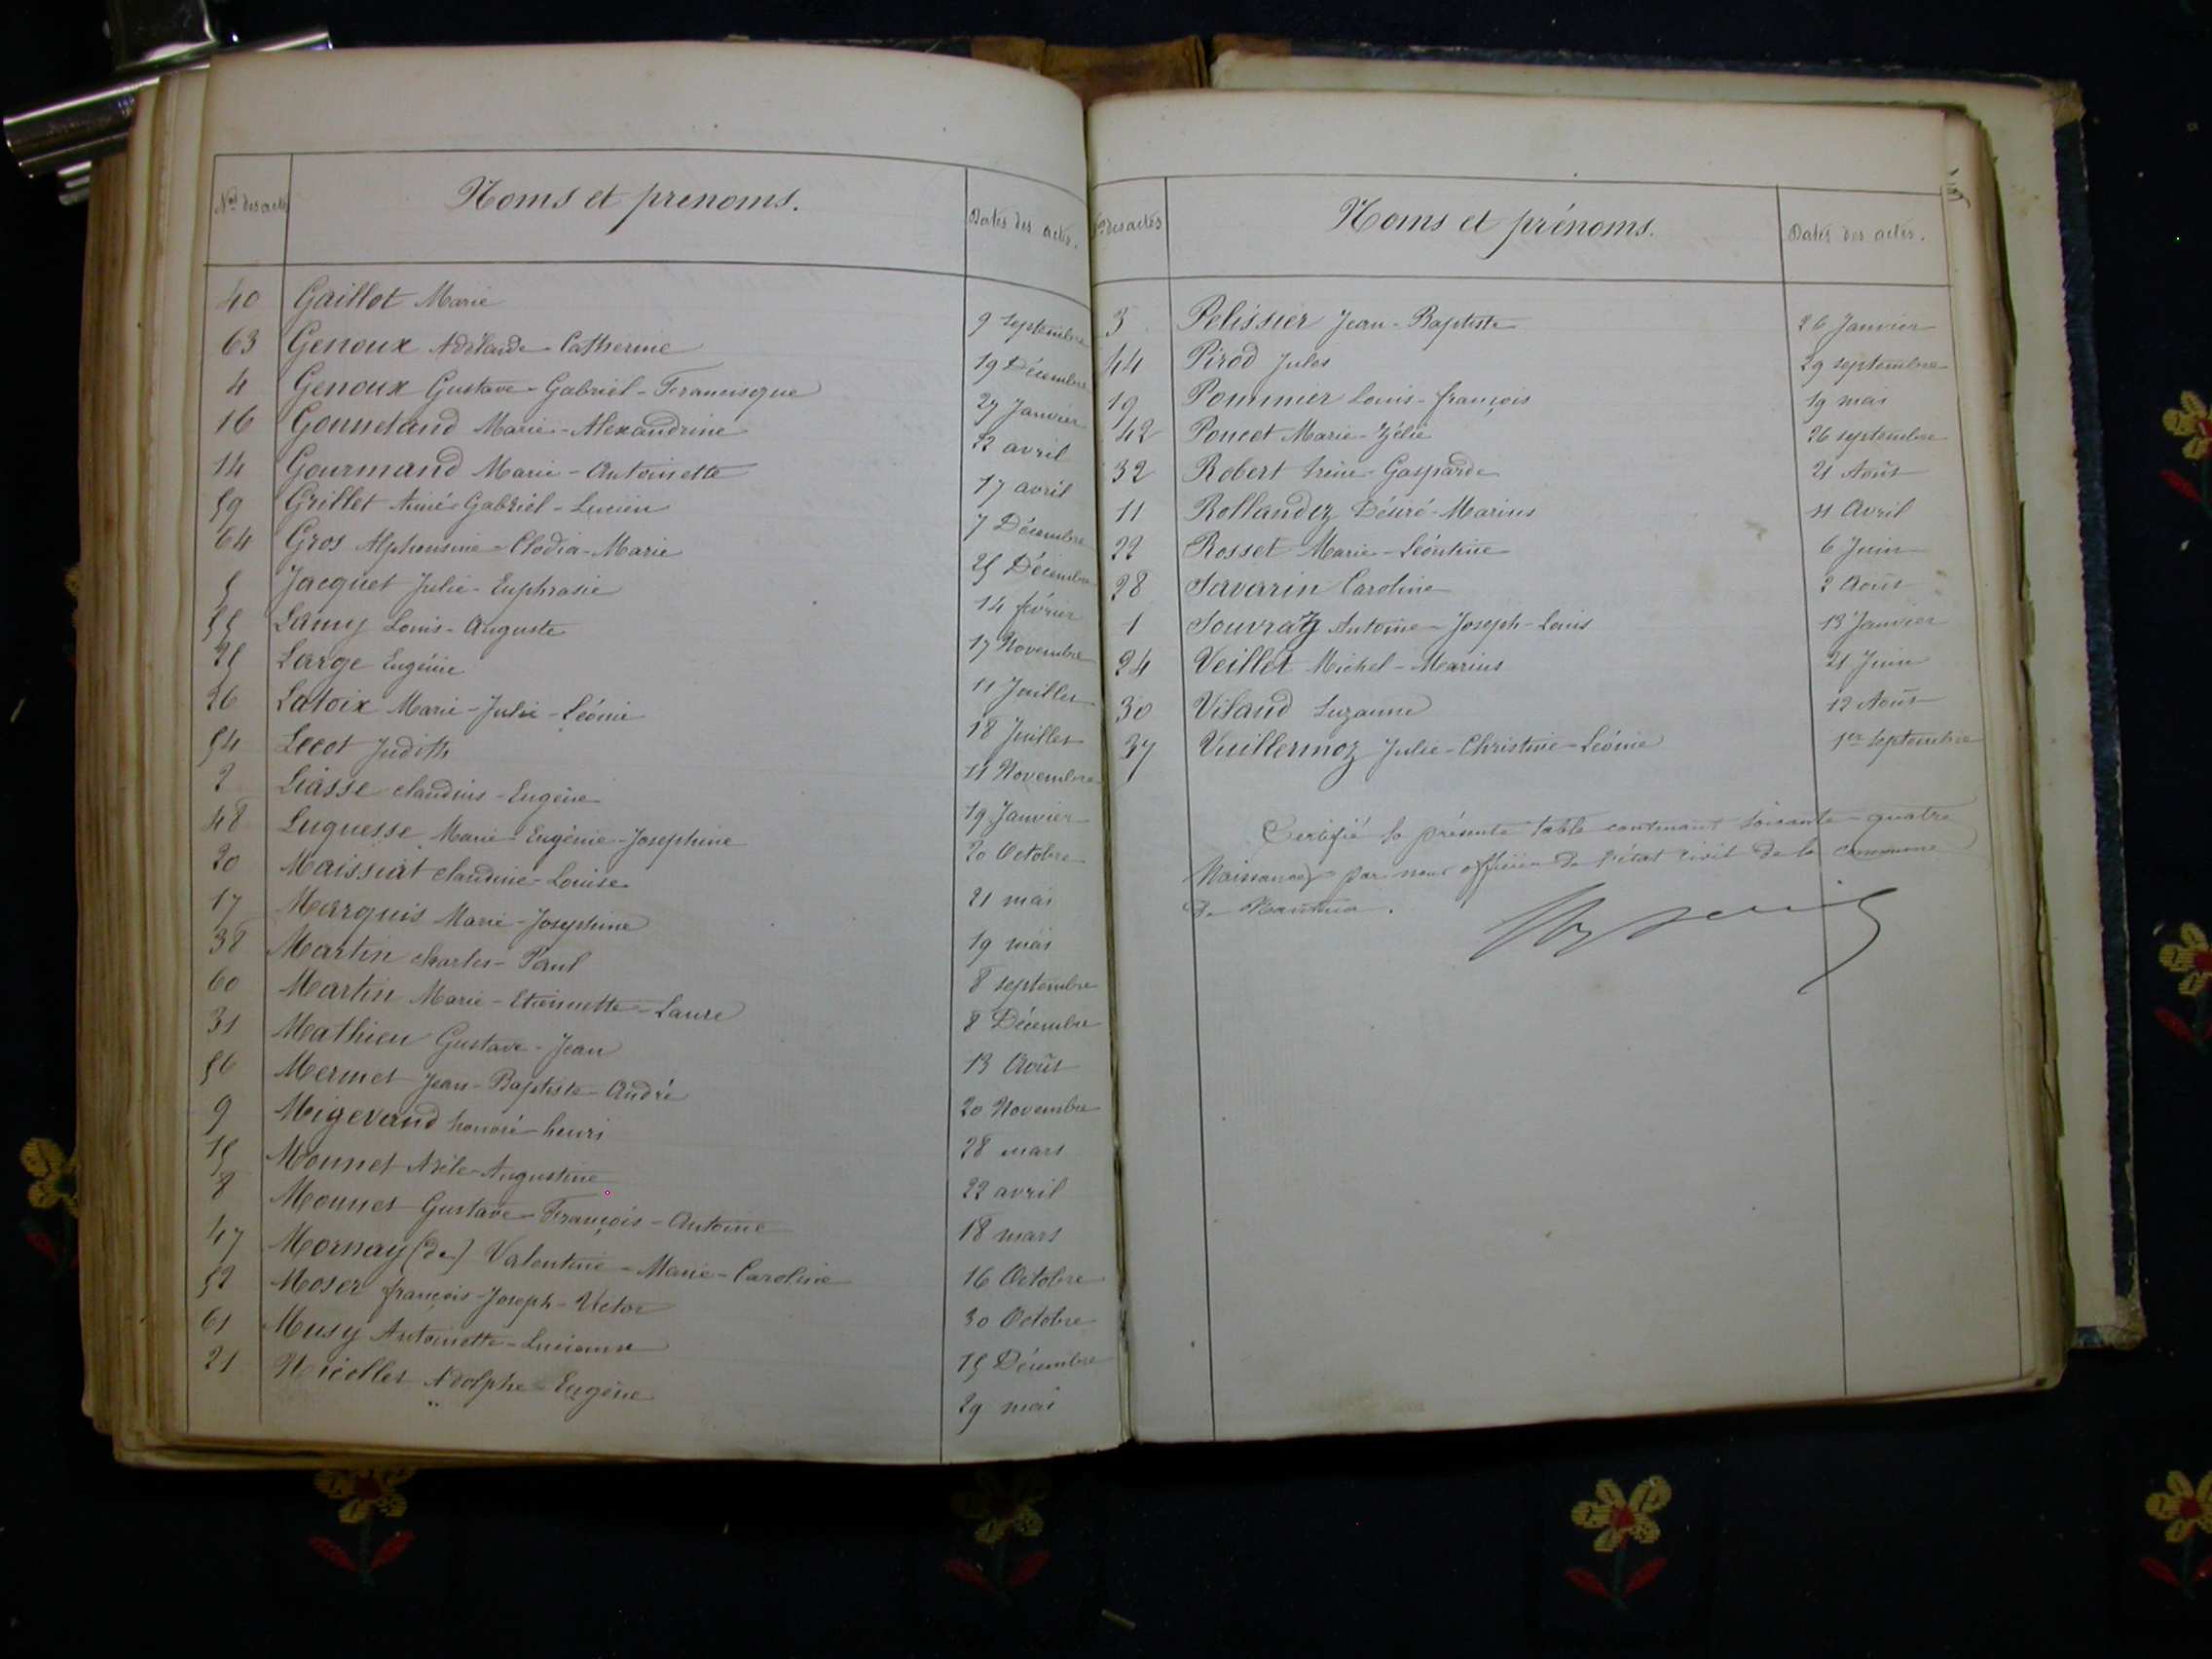 Nos des actes Noms et prenoms. Dates des actes.
40 Gaillot Marie 9 septembre
63 Genoux Adélaïde Catherine 19 Décembre
4 Genoux Gustave-Gabriel-Francisque 27 Janvier
16 Gonnetand Marie-Alexandrine 22 avril
14 Gourmand Marie-Antoinette 17 avril
59 Grillet Aimé-Gabriel-Lucien 7 Décembre
64 Gros Alphonsine-Clodia-Marie 25 Décembre
5 Jacquet Julie-Euphrasie 14 février
55 Lamy Louis-Auguste 17 Novembre
25 Large Eugénie 11 Juillet
26 Latoix Marie-Julie-Léonie 18 Juillet
54 Lecot Judith 11 Novembre
2 Liasse claudius-Eugène 19 Janvier
48 Luquesse Marie-Eugénie-Josephine 20 Octobre
20 Maissiat claudine-Louise 21 mai
17 Marquis Marie-Josephine 19 mai
38 Martin charles-Paul 8 septembre
60 Martin Marie-Etiennette-Laure 8 Décembre
31 Mathieu Gustave-Jean 13 Août
56 Mermet Jean-Baptiste-André 20 Novembre
9 Migevand honoré-henri 28 mars
15 Monnet Adèle-Augustine 22 avril
8 Monnet Gustave-François-Antoine 18 mars
47 Mornay (de) Valentine-Marie-Caroline 16 Octobre
52 Moser françois-Joseph-Victor 30 Octobre
61 Musy Antoinette-Lucienne 15 Décembre
21 Nicollet Adolphe-Eugène 29 mai
Nos des actes Noms et prénoms. Dates des actes.
3 Pelissier Jean-Baptiste 26 Janvier
44 Pirod Jules 29 septembre
19 Pommier Louis-françois 19 mai
42 Poncet Marie-Zélie 26 septembre
32 Robert Irène-Gasparde 21 Août
11 Rollandez Désiré-Marius 11 Avril
22 Rosset Marie-Léontine 6 Juin
28 Savarin Caroline 2 Août
1 Souvraz Antoine-Joseph-Louis 13 Janvier
24 Veillet Michel-Marius 21 Juin
30 Viland Suzanne 12 Août
37 Vuillermoz Julie-Christine-Léonie 1er septembre
Certifié la présente table contenant soixante-quatre
Naissances par nous officier de l'état civil de la commune
de Nantua.